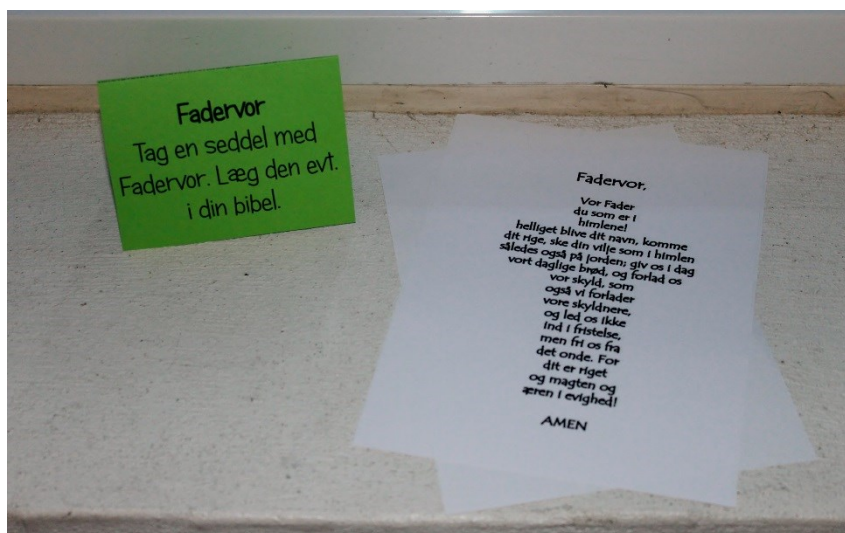 Fadervor
Tag en seddel med
Fadervor. Læg den evt.
i din bibel.
Fadervor,
Vor Fader
du som er i
himlene!
helliget blive dit navn, komme
dit rige, ske din vilje som i himlen
således også på jorden; giv os i dag
vort daglige brød, og forlad os
vor skyld, som
også vi forlader
vore skyldnere,
og led os ikke
ind i fristelse,
men fri os fra
det onde. For
dit er riget
og magten og
æren i evighed!
AMEN